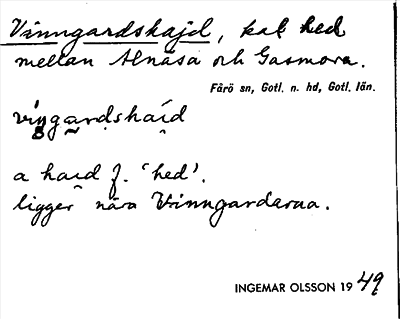 Vinngardskajd, kal hed
mellan Alnäsa och Gasmora.
Fårö sn, Gotl. n. hd, Gotl. län.
viŋgardshaid
a haid f. 'hed'.
ligger nära Vinngardarna.
INGEMAR OLSSON 1949